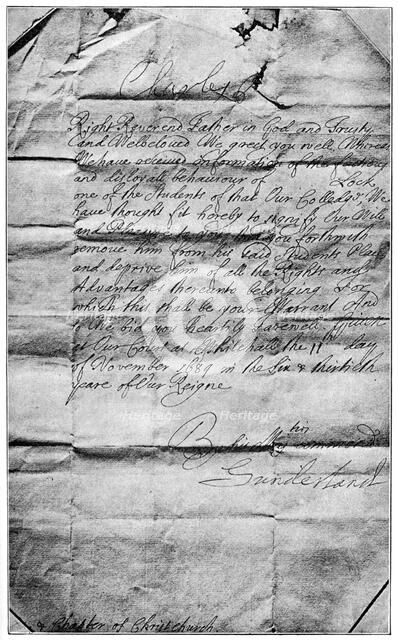 Charles R
Right Reverend Father in God and Trusty
and Welbeloved We greet you well. Whereas
We have received information of the factious
and disloyall behaviour of Lock
one of the Students of that Our Colledge, We
have thought fit hereby to signify Our Will
and Pleasure to you, that you forthwith
remove him from his said Students Place
and deprive him of all the Rights and
Advantages thereunto belonging For
which this shall be your Warrant And
so We bid you heartily farewell. Given
at Our Court at Whitehall the 11th day
of November 1684 in the Six & thirtieth
yeare of Our Reigne
By his Matys command.
Sunderland
& Chapter of Christchurch.
Heritage Heritage